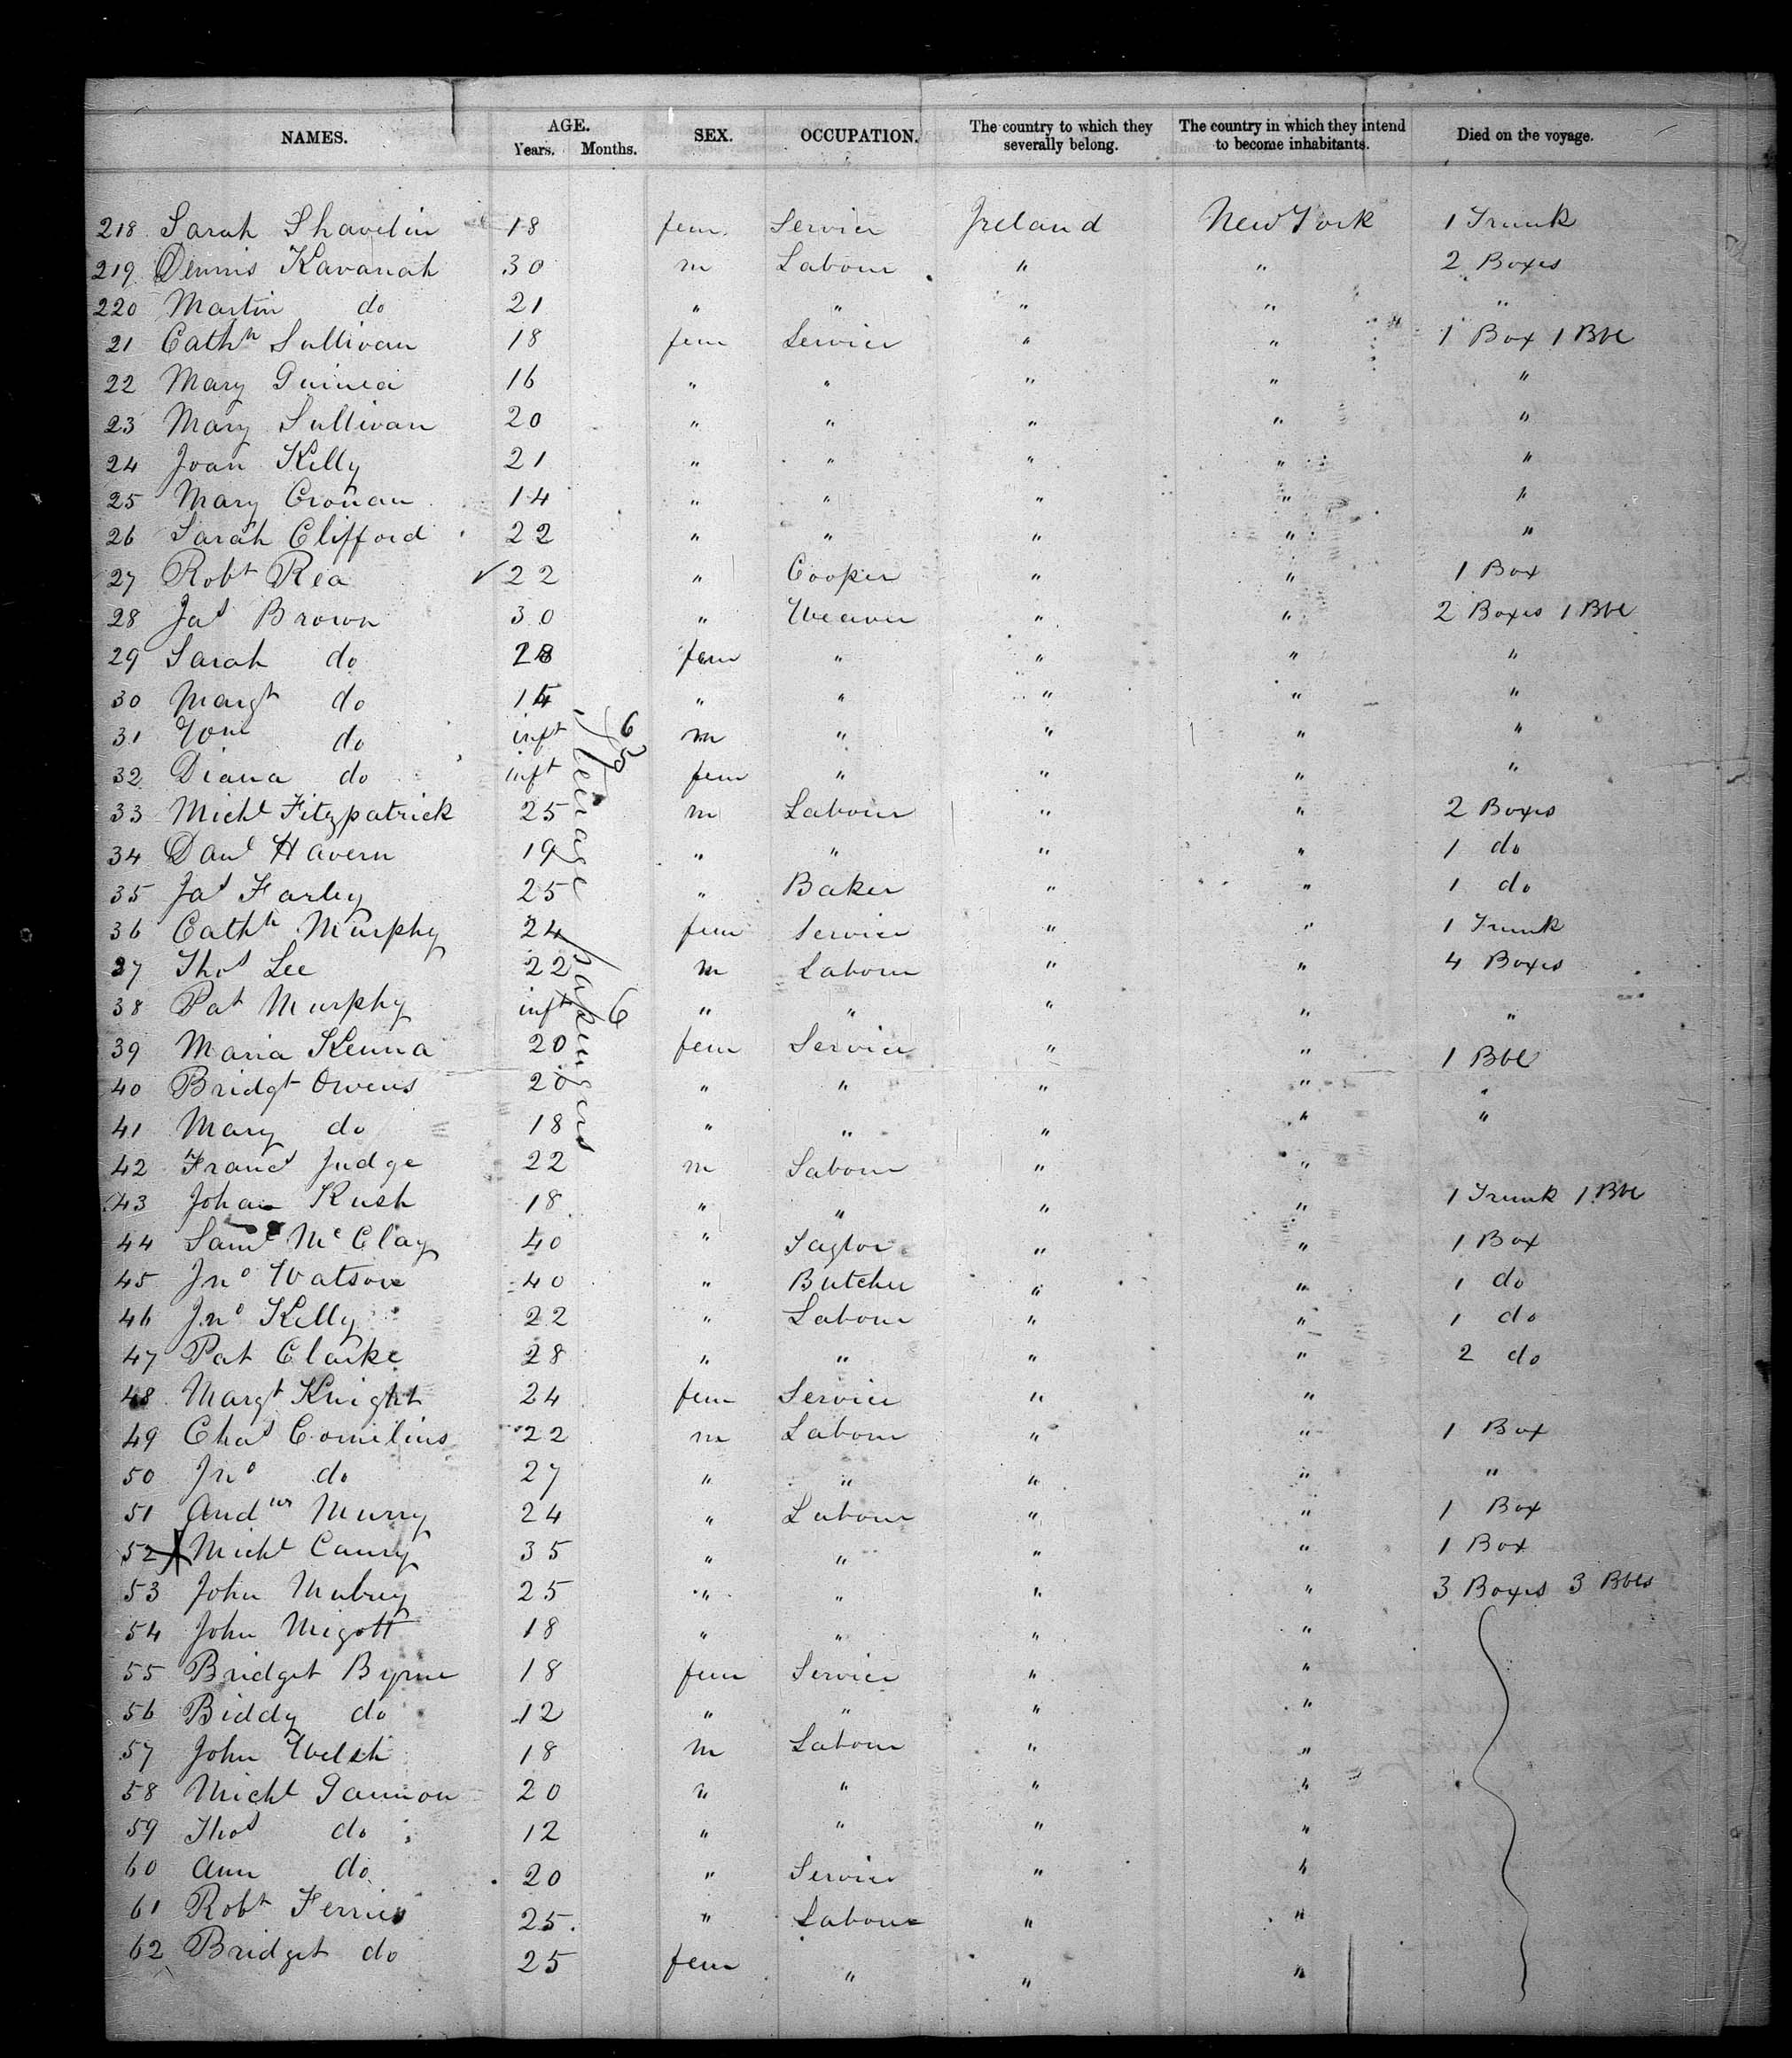 NAMES. AGE. Years. Months. SEX. OCCUPATION. The country to which they severally belong. The country in which they intend to become inhabitants. Died on the voyage.
218 Sarah Shavelin 18 fem. Servier Ireland New York 1 Trunk
219 Dennis Kavanah 30 m Labour " " 2 Boxes
220 Martin do 21 " " " " "
21 Cathn Sullivan 18 fem Servier " " 1 Box 1 Bbl
22 Mary Guinea 16 " " " " "
23 Mary Sullivan 20 " " " " "
24 Joan Kelly 21 " " " " "
25 Mary Cronan 14 " " " " "
26 Sarah Clifford 22 " " " " "
27 Robt Rea ✓ 22 " Cooper " " 1 Box
28 Jas Brown 30 " Weaver " " 2 Boxes 1 Bbl
29 Sarah do 28 fem " " " "
30 Margt do " " " " "
31 do inft m " " " "
32 Diana do inft fem " " " "
33 Michl Fitzpatrick 25 m Labour " " 2 Boxes
34 Danl Havern 19 " " " " 1 do
35 Jas Farley 25 " Baker " " 1 do
36 Cathn Murphy 24 fem Servier " " 1 Trunk
37 Thos Lee 22 m Labour " " 4 Boxes
38 Pat Murphy inft 6 " " " " "
39 Maria Kenna 20 fem Servier " " 1 Bbl
40 Bridgt Owens 20 " " " " "
41 Mary do 18 " " " " "
42 Francs Judge 22 m Labour " "
43 Johan Rush 18 " " " " 1 Trunk 1 Bbl
44 Saml McClay 40 " Taylor " " 1 Box
45 Jno Watson 40 " Butcher " " 1 do
46 Jno Kelly 22 " Labour " " 1 do
47 Pat Clarke 28 " " " " 2 do
48 Margt Knight 24 fem Servier " "
49 Chas Cornilius 22 m Labour " " 1 Box
50 Jno do 27 " " " " "
51 Andw Murry 24 " Labour " " 1 Box
52 X Michl 35 " " " " 1 Box
53 John 25 " " " " 3 Boxes 3 Bbls
54 John Migott 18 " " " "
55 Bridget Byrne 18 fem Servier " "
56 Biddy do 12 " " " "
57 John Welsh 18 m Labour " "
58 Michl Gannon 20 " " " "
59 Thos do 12 " " " "
60 Ann do 20 " Servier " "
61 Robt Ferries 25 " Labour " "
62 Bridget do 25 fem " " "
Steirage Passengers